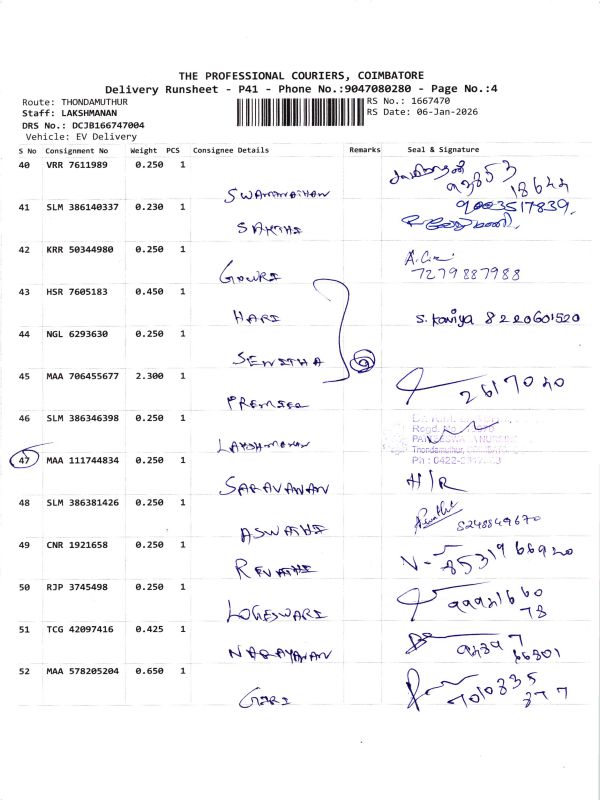 THE PROFESSIONAL COURIERS, COIMBATORE
Delivery Runsheet - P41 - Phone No.:9047080280 - Page No.:4
Route: THONDAMUTHUR
RS No.: 1667470
Staff: LAKSHMANAN
RS Date: 06-Jan-2026
DRS No.: DCJB166747004
Vehicle: EV Delivery
S No Consignment No Weight PCS Consignee Details Remarks Seal & Signature
40 VRR 7611989 0.250 1
SWAMINATHAN
41 SLM 386140337 0.230 1 9003517839
SAKTHI
42 KRR 50344980 0.250 1
GOWRI 7279887988
43 HSR 7605183 0.450 1
HARI S. Kaviya 8220601520
44 NGL 6293630 0.250 1
SENITHA 9
45 MAA 706455677 2.300 1
2617020
46 SLM 386346398 0.250 1
LAKSHMANAN
47 MAA 111744834 0.250 1
Thondamuthur,
SARAVANAN H/R
48 SLM 386381426 0.250 1
ASWATHI 8248849670
49 CNR 1921658 0.250 1
REVATHI
50 RJP 3745498 0.250 1
LOGESWARI
51 TCG 42097416 0.425 1
NARAYANAN
52 MAA 578205204 0.650 1
GIRI